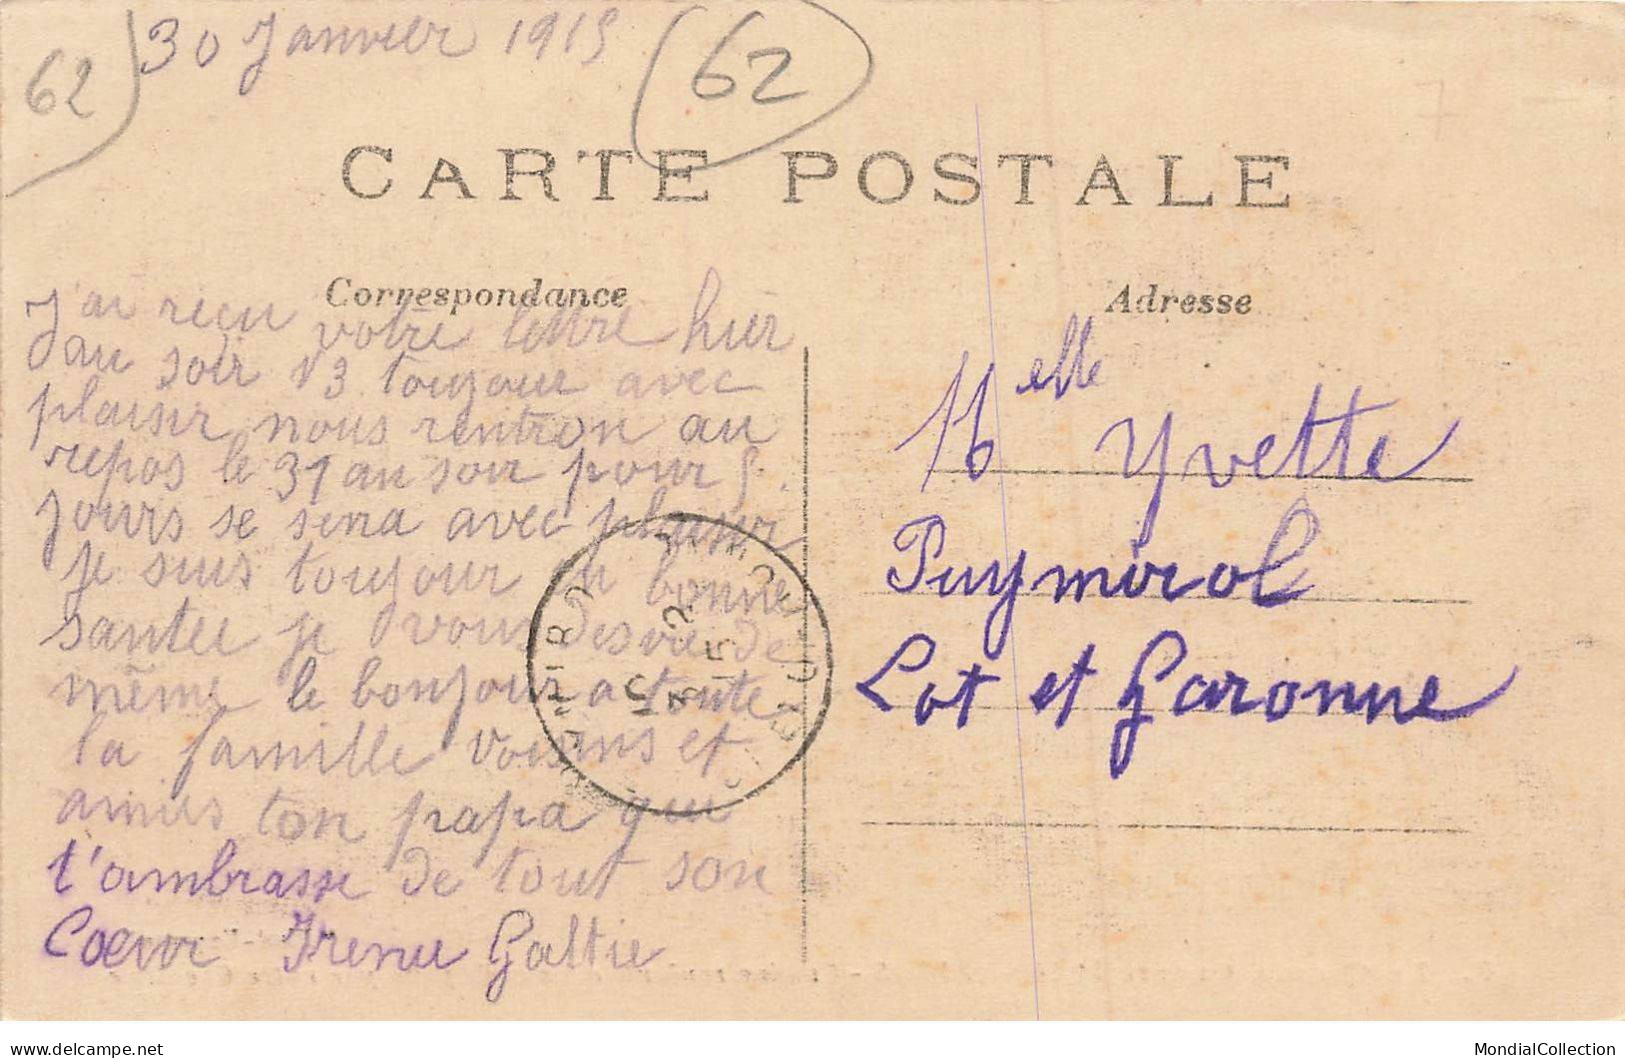 62
30 Janvier 1915
62
CARTE POSTALE
Correspondance
Adresse
J'ai reçu votre lettre hier
au soir 13 toujour avec
plaisir nous rentron au
repos le 31 au soir pour 5
jours se sera avec plaisir
je suis toujour en bonne
santée je vous desire de
même le bonjour a toute
la famille voisins et
amies ton papa qui
t'ambrasse de tout son
Coeur Irenee Galtie
Melle Yvette
Puymirol
Lot et Garonne
delcampe.net
MondialCollection